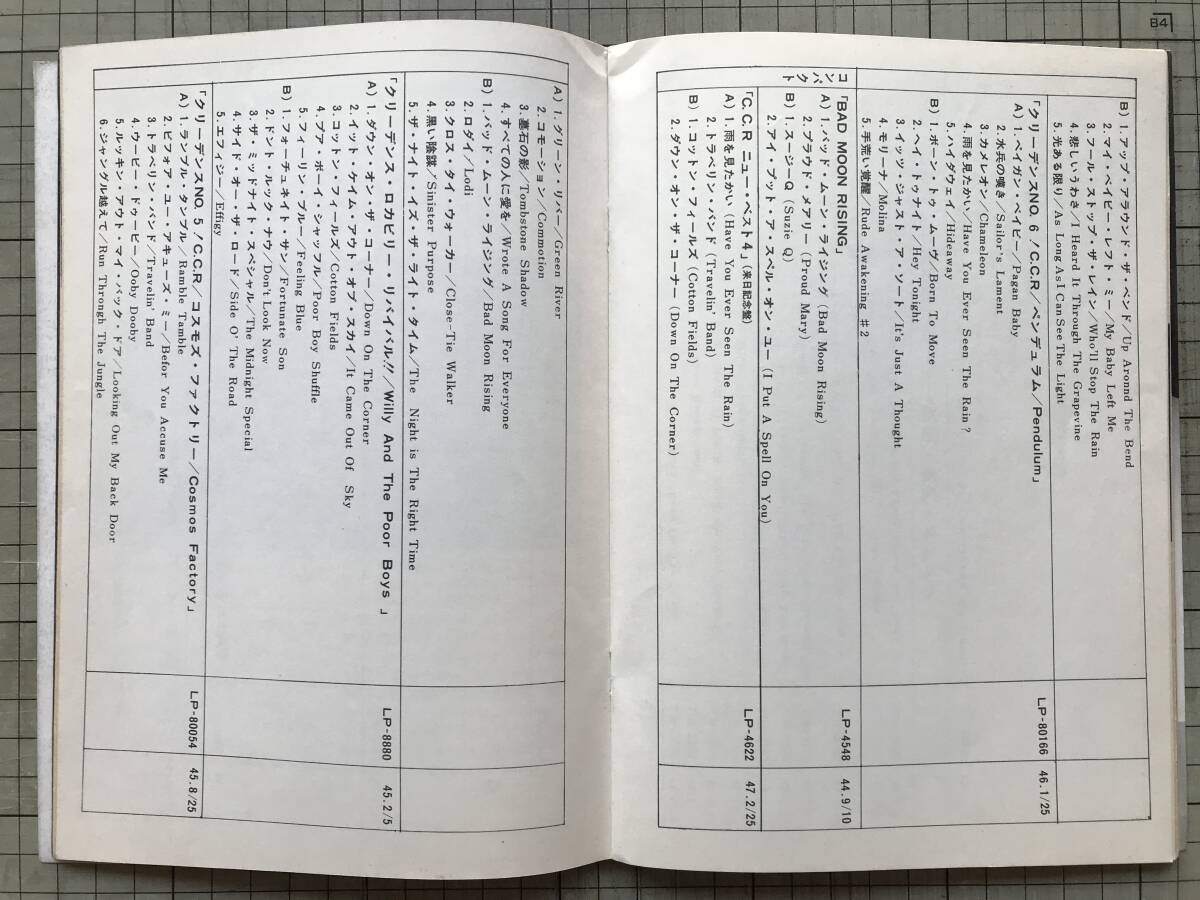 A) 1. グリーン・リバー／Green River
2. コモーション／Commotion
3 墓石の影／Tombstone Shadow
4. すべての人に愛を／Wrote A Song For Everyone
B) 1. バッド・ムーン・ライジング／Bad Moon Rising
2. ロダイ／Lodi
3. クロス・タイ・ウォーカー／Close-Tie Walker
4. 黒い陰謀／Sinister Purpose
5. ザ・ナイト・イズ・ザ・ライト・タイム／The Night is The Right Time
「クリーデンス・ロカビリー・リバイバル!!／Willy And The Poor Boys」 LP-8880 45.2/5
A) 1. ダウン・オン・ザ・コーナー／Down On The Corner
2. イット・ケイム・アウト・オブ・スカイ／It Came Out Of Sky
3. コットン・フィールズ／Cotton Fields
4. プア・ボーイ・シャッフル／Poor Boy Shuffle
5. フィーリン・ブルー／Feeling Blue
B) 1. フォーチュネイト・サン／Fortunate Son
2. ドント・ルック・ナウ／Don't Look Now
3. ザ・ミッドナイト・スペシャル／The Midnight Special
4. サイド・オー・ザ・ロード／Side O' The Road
5. エフィジー／Effigy
「クリーデンスNO. 5！C.C.R／コスモズ・ファクトリー／Cosmos Factory」 LP-80054 45.8/25
A) 1. ランブル・タンブル／Ramble Tamble
2. ビフォア・ユー・アキューズ・ミー／Befor You Accuse Me
3. トラベリン・バンド／Travelin' Band
4. ウービー・ドゥービー／Ooby Dooby
5. ルッキン・アウト・マイ・バック・ドア／Looking Out My Back Door
6. ジャングル越えて／Run Throngh The Jungle
B) 1. アップ・アラウンド・ザ・ベンド／Up Aronnd The Bend
2. マイ・ベイビー・レフト・ミー／My Baby Left Me
3. フール・ストップ・ザ・レイン／Who'll Stop The Rain
4. 悲しいうわさ／I Heard It Through The Grapevine
5. 光ある限り／As Long As I Can See The Light
「クリーデンスNO. 6！C.C.R／ペンデュラム／Pendulum」 LP-80166 46.1/25
A) 1. ペイガン・ベイビー／Pagan Baby
2. 水兵の嘆き／Sailor's Lament
3. カメレオン／Chameleon
4. 雨を見たかい／Have You Ever Seen The Rain?
5. ハイダウェイ／Hideaway
B) 1. ボーン・トゥ・ムーヴ／Born To Move
2. ヘイ・トゥナイト／Hey Tonight
3. イッツ・ジャスト・ア・ソート／It's Just A Thought
4. モリーナ／Molina
5. 手荒い覚醒／Rude Awakening ♯2
コンパクト
「BAD MOON RISING」 LP-4548 44.9/10
A) 1. バッド・ムーン・ライジング（Bad Moon Rising）
2. プラウド・メアリー（Proud Mary）
B) 1. スージーQ（Suzie Q）
2. アイ・プット・ア・スペル・オン・ユー（I Put A Spell On You）
「C.C.R ニュー・ベスト4」（来日記念盤） LP-4622 47.2/25
A) 1. 雨を見たかい（Have You Ever Seen The Rain）
2. トラベリン・バンド（Travelin' Band）
B) 1. コットン・フィールズ（Cotton Fields）
2. ダウン・オン・ザ・コーナー（Down On The Corner）
B4